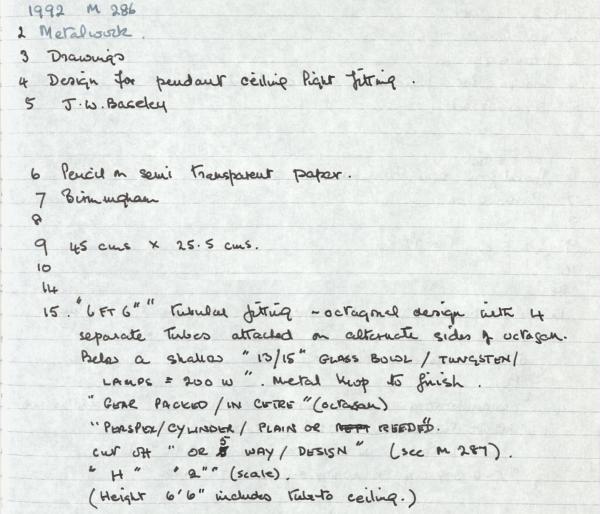 1992 M 286
2 Metalwork.
3 Drawings
4 Design for pendant ceiling light fitting.
5 J.W. Baseley
6 Pencil on semi transparent paper.
7 Birmingham
8
9 45 cms x 25.5 cms.
10
14
15. "6 FT 6"" tubular fitting - octagonal design with 4
separate tubes attached on alternate sides of octagon.
Below a shallow "13/15" GLASS BOWL / TUNGSTEN/
LAMPS = 200 W". Metal knop to finish.
"GEAR PACKED/IN CETRE" (octagon)
"PERSPEX/CYLINDER/ PLAIN OR REEDED".
cut off "OR 5 WAY/ DESIGN" (see M 287).
"H" "2"" (scale).
(Height 6'6" includes tube to ceiling.)